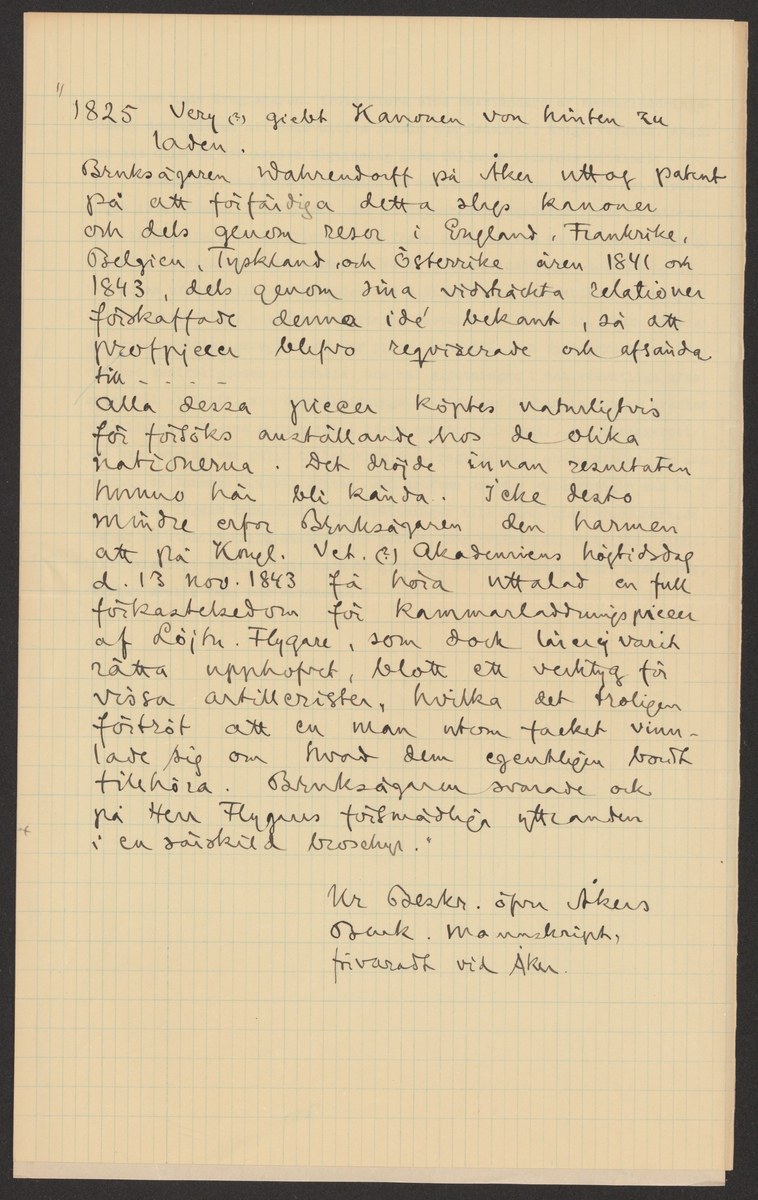 "
1825 Very (?) giebt Kanonen von hinten zu
laden.
Bruksägaren Wahrendorff på Åker uttog patent
på att förfärdiga detta slags kanoner
och dels genom resor i England, Frankrike,
Belgien, Tyskland, och Österrike åren 1841 och
1843, dels genom sina vidsträckta relationer
förskaffade denna idé bekant, så att
profpjeser blefvo reqvirerade och afsända
till - - - -
Alla dessa piecer köptes naturligtvis
för försöks anställande hos de olika
nationerna. Det dröjde innan resultaten
hunno här bli kända. Icke desto
mindre erfor Bruksägaren den harmen
att på Kongl. Vet. (?) Akademiens högtidsdag
d. 13 nov. 1843 få höra uttalad en full
förkastelsedom för kammarladdningspiecer
af Löjtn. Flygare, som dock lär ej varit
rätta upphofvet, blott ett verktyg för
vissa artillerister, hvilka det troligen
förtröt att en man utom facket vinn-
lade sig om hvad dem egentligen bordt
tillhöra. Bruksägaren svarade ock
på Herr Flygares försmädliga yttranden
i en särskild broschyr."
Ur Beskr. öfver Åkers
Bruk. Manuskript,
förvaradt vid Åker.